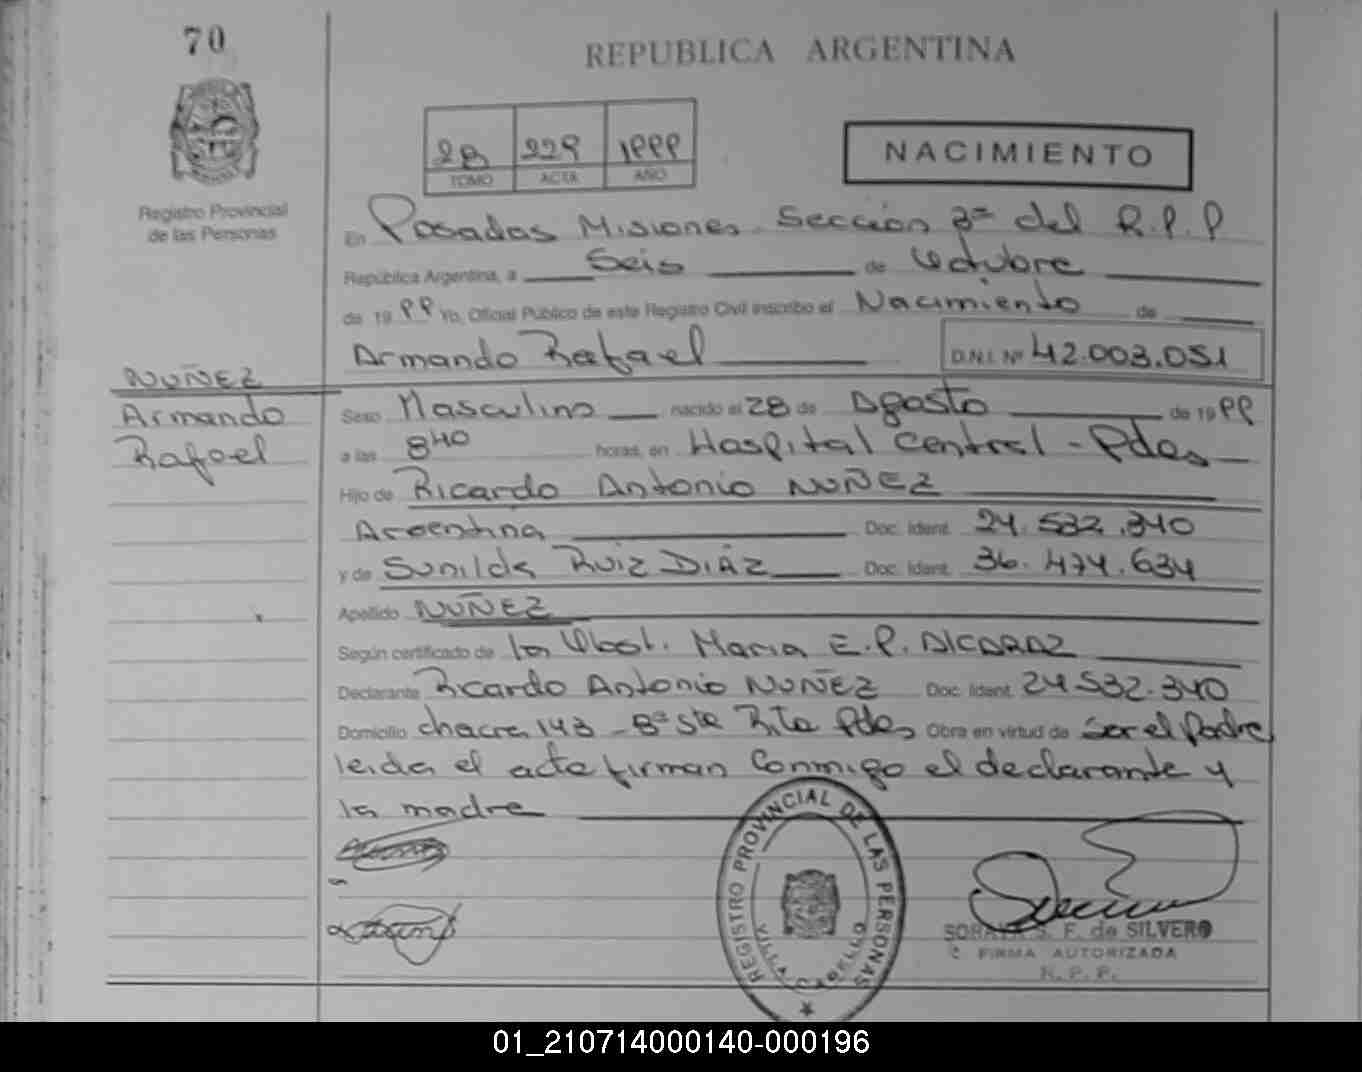 70
REPUBLICA ARGENTINA
28 229 1999
TOMO ACTA AÑO
NACIMIENTO
Registro Provincial
de las Personas
En Posadas Misiones Sección 3ª del R.P.P
República Argentina, a Seis de Octubre
de 1999 Yo, Oficial Público de este Registro Civil inscribo el Nacimiento de
Armando Rafael D.N.I. Nº 42.003.051
NUÑEZ
Armando
Rafael
Sexo Masculino nacido el 28 de Agosto de 1999
a las 8 40 horas, en Hospital Central - Pdas
Hijo de Ricardo Antonio NUÑEZ
Argentina Doc. Ident. 24.532.340
y de Sunilda Ruiz DIAZ Doc. Ident. 36.474.634
Apellido NUÑEZ
Según certificado de la Obst. Maria E.P. ALCARAZ
Declarante Ricardo Antonio NUÑEZ Doc. Ident. 24.532.340
Domicilio chacra 143 - Bª Sta Rita Pdas Obra en virtud de Ser el Padre
leida el acta firman Conmigo el declarante y
la madre
REGISTRO PROVINCIAL DE LAS PERSONAS
VILLA CABELLO
S. F. de SILVERO
FIRMA AUTORIZADA
R. P. P.
01_210714000140-000196